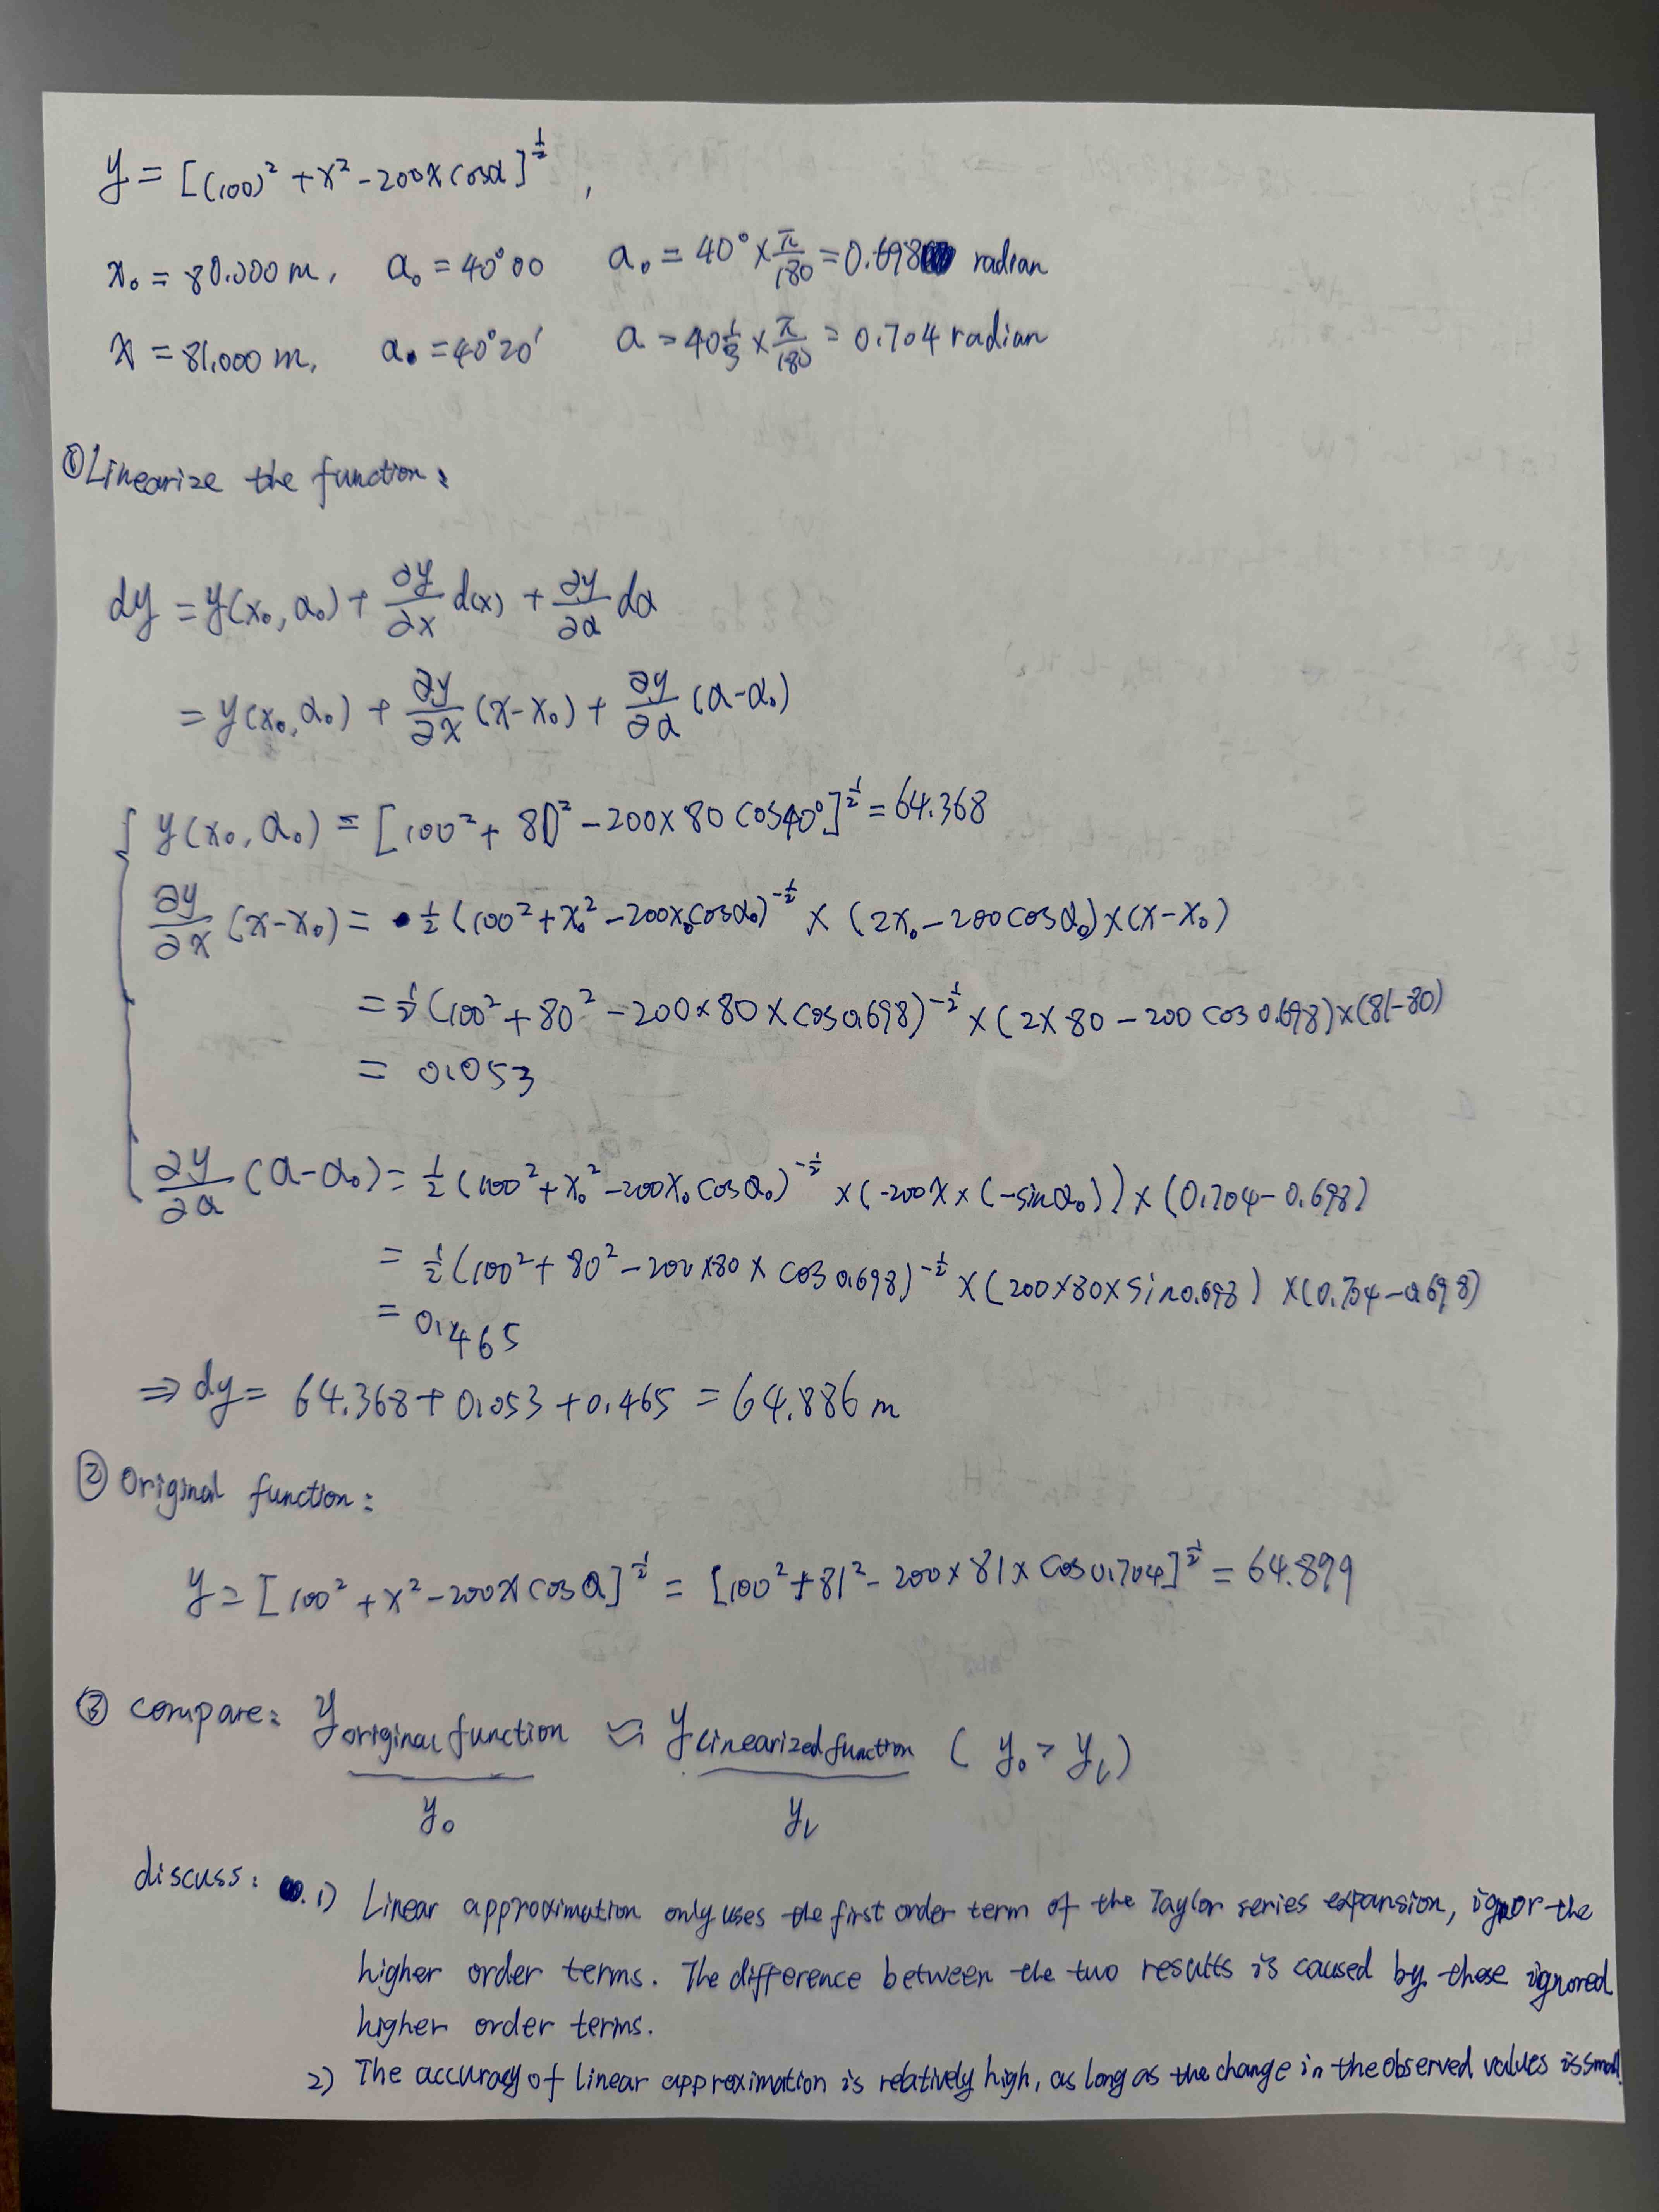 y = [(100)² + x² - 200x cosα]^½ ,
x₀ = 80.000 m, α₀ = 40°00 a₀ = 40° × π/180 = 0.698 radian
x = 81.000 m, α. = 40°20' a = 40⅓ × π/180 = 0.704 radian
① Linearize the function:
dy = y(x₀, α₀) + ∂y/∂x d(x) + ∂y/∂α dα
= y(x₀, α₀) + ∂y/∂x (x-x₀) + ∂y/∂α (α-α₀)
y(x₀, α₀) = [100² + 80² - 200×80 cos40°]^½ = 64.368
∂y/∂x (x-x₀) = ½ (100² + x₀² - 200x₀cosα₀)^-½ × (2x₀ - 200cosα₀) × (x-x₀)
= ½ (100² + 80² - 200×80×cos0.698)^-½ × (2×80 - 200 cos 0.698) × (81-80)
= 0.053
∂y/∂α (α-α₀) = ½ (100² + x₀² - 200x₀ cosα₀)^-½ × (-200x × (-sinα₀)) × (0.704 - 0.698)
= ½ (100² + 80² - 200×80 × cos 0.698)^-½ × (200×80×sin0.698) × (0.704-0.698)
= 0.465
⇒ dy = 64.368 + 0.053 + 0.465 = 64.886 m
② Original function:
y = [100² + x² - 200x cosα]^½ = [100² + 81² - 200×81×cos0.704]^½ = 64.899
③ compare: y original function ≈ y linearized function ( y₀ > yL )
y₀ yL
discuss: 1) Linear approximation only uses the first order term of the Taylor series expansion, ignor the
higher order terms. The difference between the two results is caused by these ignored
higher order terms.
2) The accuracy of linear approximation is relatively high, as long as the change in the observed values is small.